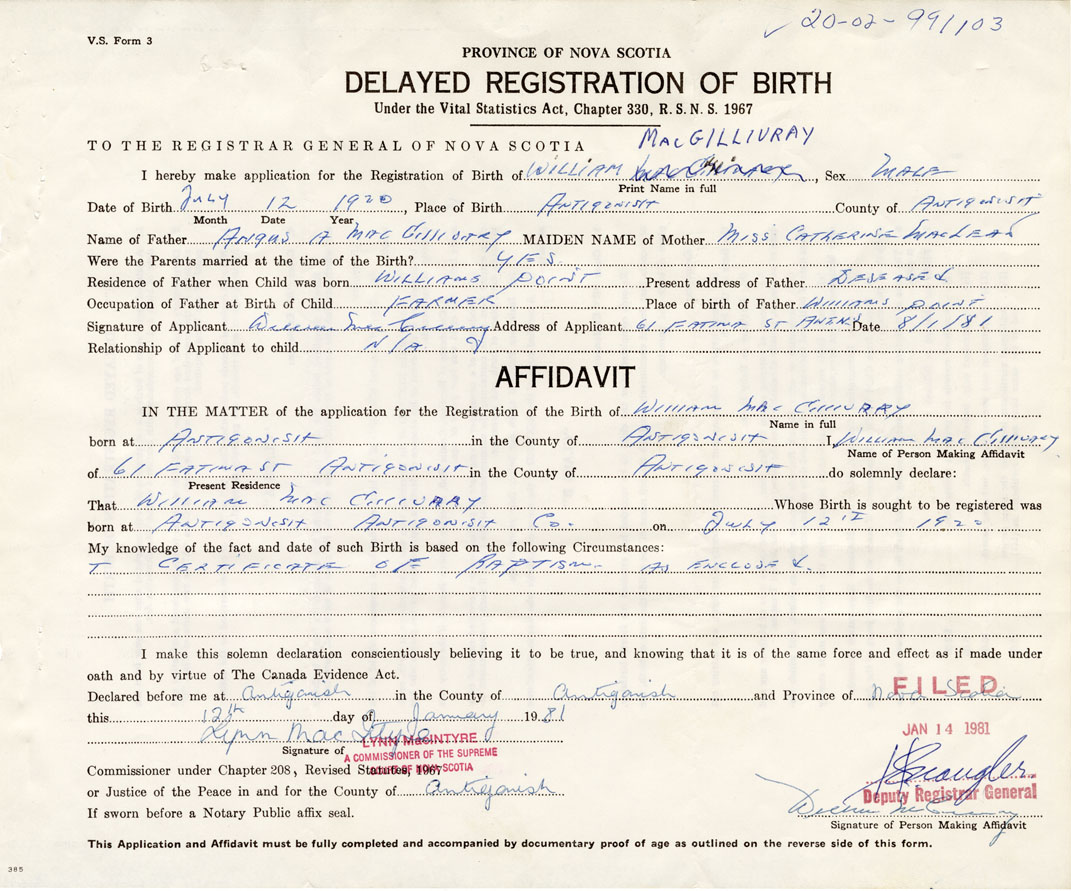 20-02-99/103
V.S. Form 3
PROVINCE OF NOVA SCOTIA
DELAYED REGISTRATION OF BIRTH
Under the Vital Statistics Act, Chapter 330, R.S.N.S. 1967
MacGILLIVRAY
TO THE REGISTRAR GENERAL OF NOVA SCOTIA
I hereby make application for the Registration of Birth of WILLIAM, Sex MALE
Print Name in full
Date of Birth July 12 1920, Place of Birth ANTIGONISH County of ANTIGONISH
Month Date Year
Name of Father ANGUS A MAC GILLIVRAY MAIDEN NAME of Mother MISS CATHERINE MACLEAD
Were the Parents married at the time of the Birth? YES
Residence of Father when Child was born WILLIAMS POINT Present address of Father DESEASED
Occupation of Father at Birth of Child FARMER Place of birth of Father WILLIAMS POINT
Signature of Applicant Address of Applicant 61 FATIMA ST Date 8/1/81
Relationship of Applicant to child N/A
AFFIDAVIT
IN THE MATTER of the application for the Registration of the Birth of WILLIAM MAC GILLIVRAY
Name in full
born at ANTIGONISH in the County of ANTIGONISH I, WILLIAM MAC GILLIVRAY
Name of Person Making Affidavit
of 61 FATIMA ST ANTIGONISH in the County of ANTIGONISH do solemnly declare:
Present Residence
That WILLIAM MAC GILLIVRAY Whose Birth is sought to be registered was
born at ANTIGONISH ANTIGONISH Co. on July 12 1920
My knowledge of the fact and date of such Birth is based on the following Circumstances:
CERTIFICATE OF BAPTISM AS ENCLOSED.
I make this solemn declaration conscientiously believing it to be true, and knowing that it is of the same force and effect as if made under
oath and by virtue of The Canada Evidence Act.
Declared before me at Antigonish in the County of Antigonish and Province of Nova Scotia
FILED
this 12th day of January 1981
JAN 14 1981
Lynn MacIntyre
LYNN MacINTYRE
Signature of
A COMMISSIONER OF THE SUPREME
COURT OF NOVA SCOTIA
Commissioner under Chapter 208, Revised Statutes, 1967
or Justice of the Peace in and for the County of Antigonish
Deputy Registrar General
If sworn before a Notary Public affix seal.
Signature of Person Making Affidavit
This Application and Affidavit must be fully completed and accompanied by documentary proof of age as outlined on the reverse side of this form.
385